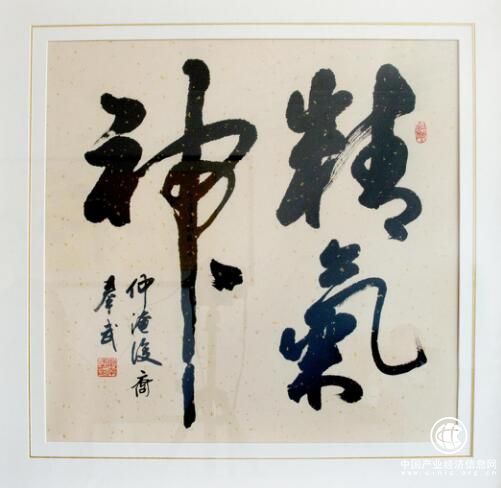 精氣
神
仲淹後裔
中国产业经济信息网
www.cinic.org.cn